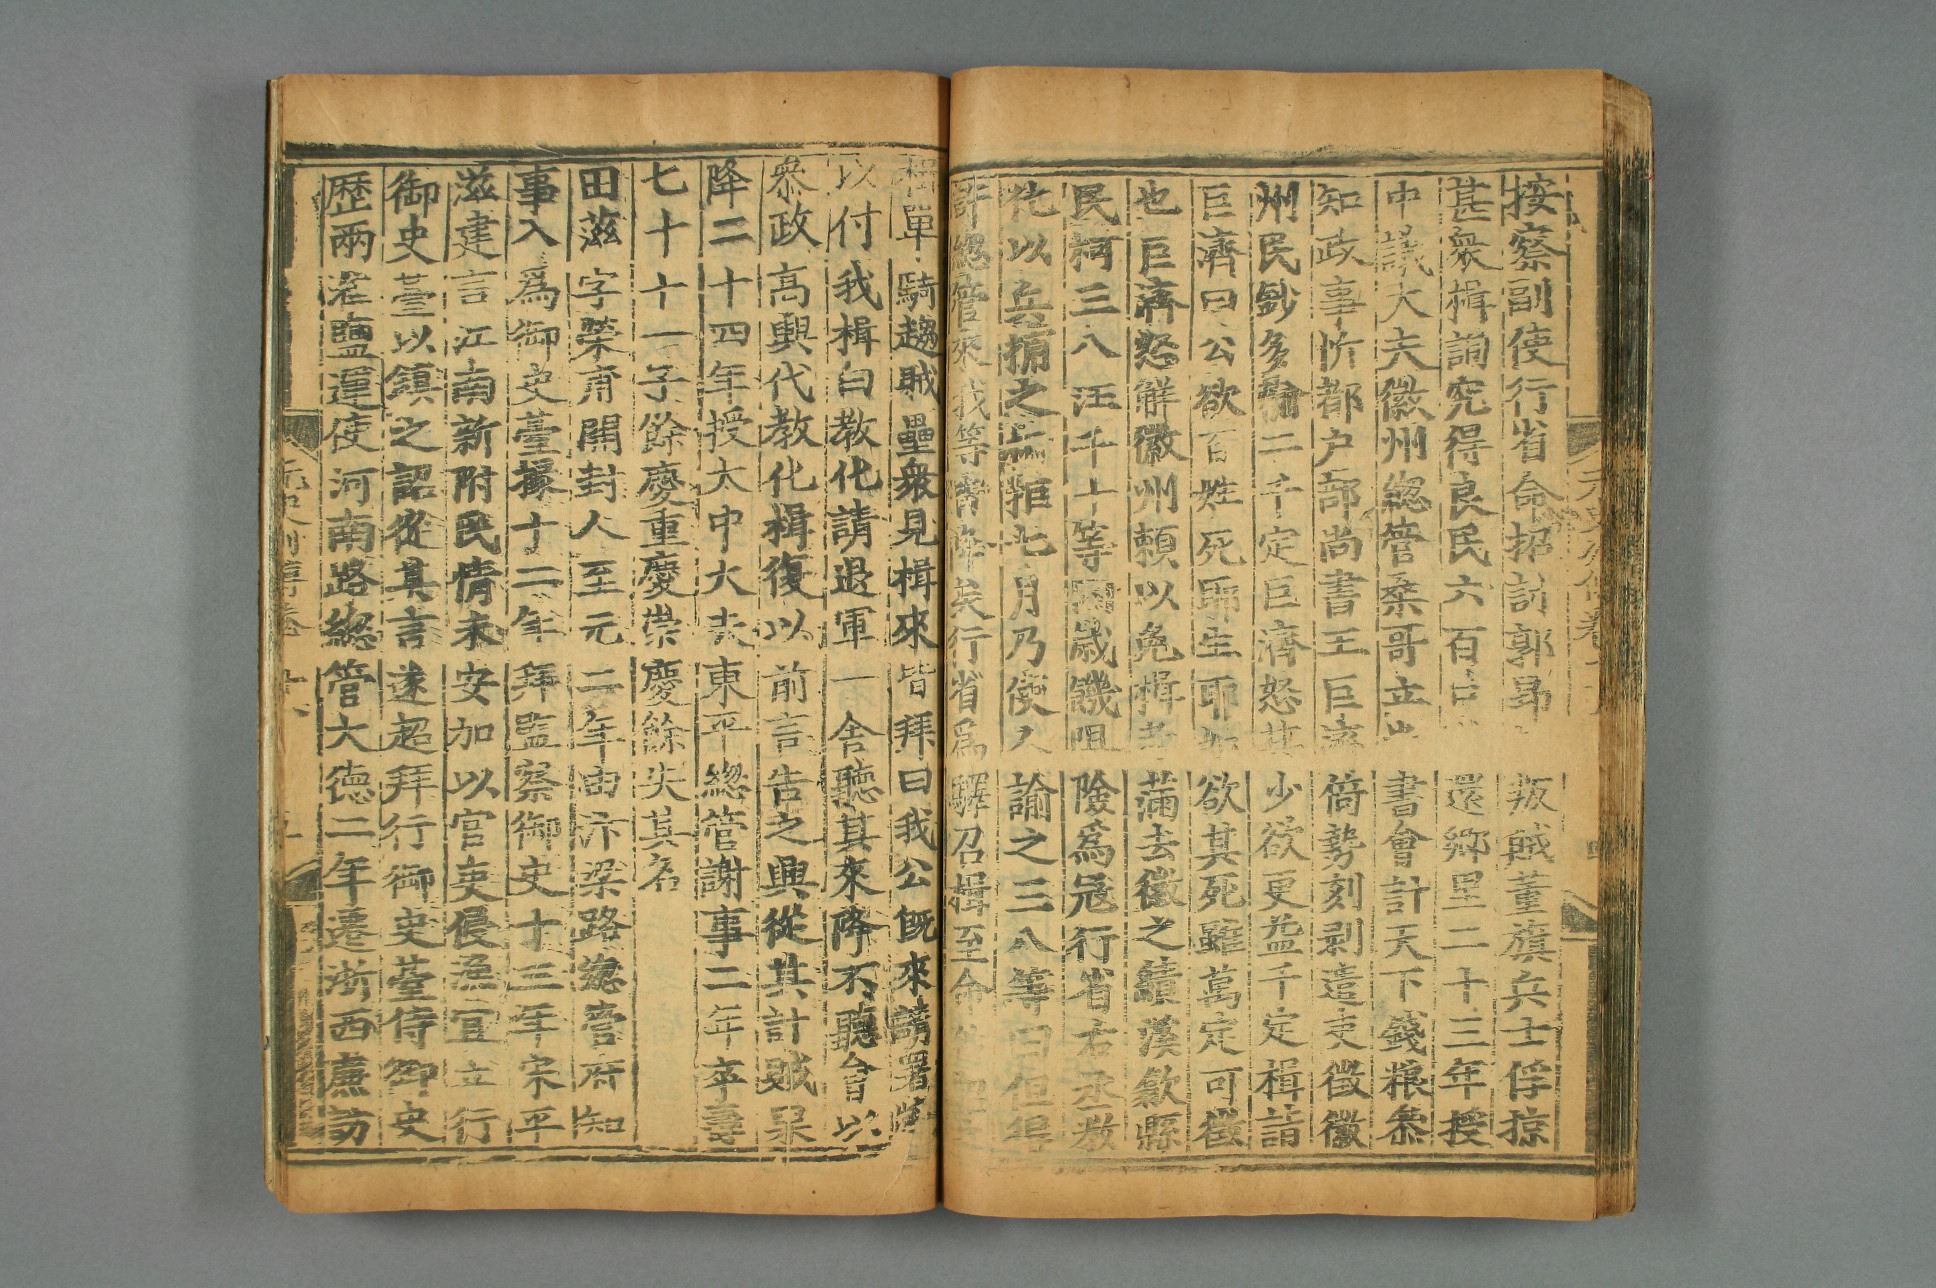 按察副使行省命招討郭昂 叛賊董旗兵士俘掠
甚衆楫詢究得良民六百 還鄉里二十三年授
中議大夫徽州緫管桑哥立 書會計天下錢糧叅
知政事忻都户部尚書王巨濟 倚勢刻剥遣吏徵徽
州民鈔多輸二千定巨濟怒其 少欲更益千定楫詣
巨濟曰公欲百姓死耶生耶如 欲其死雖萬定可徵
也巨濟怒解徽州頼以免楫 滿去徽之績溪歙縣
民柯三八汪千十等因歲饑阻 險爲冦行省右丞教
化以兵捕之 拒七月乃使人 諭之三八等曰但得
許緫管來我等皆降矣行省爲 驛召楫至命
楫單騎趨賊壘衆見楫來皆拜曰我公旣來請署
以付我楫白教化請退軍一舍聽其來降不聽會以
叅政高興代教化楫復以前言告之興從其計賊果
降二十四年授大中大夫東平緫管謝事二年卒壽
七十十一子餘慶重慶崇慶餘失其名
田滋字榮甫開封人至元二年由汴梁路緫管府知
事入爲御史臺掾十二年拜監察御史十三年宋平
滋建言江南新附民情未安加以官吏侵漁宜立行
御史臺以鎮之詔從其言遂超拜行御史臺侍御史
歷兩淮鹽運使河南路緫管大德二年遷浙西廉訪